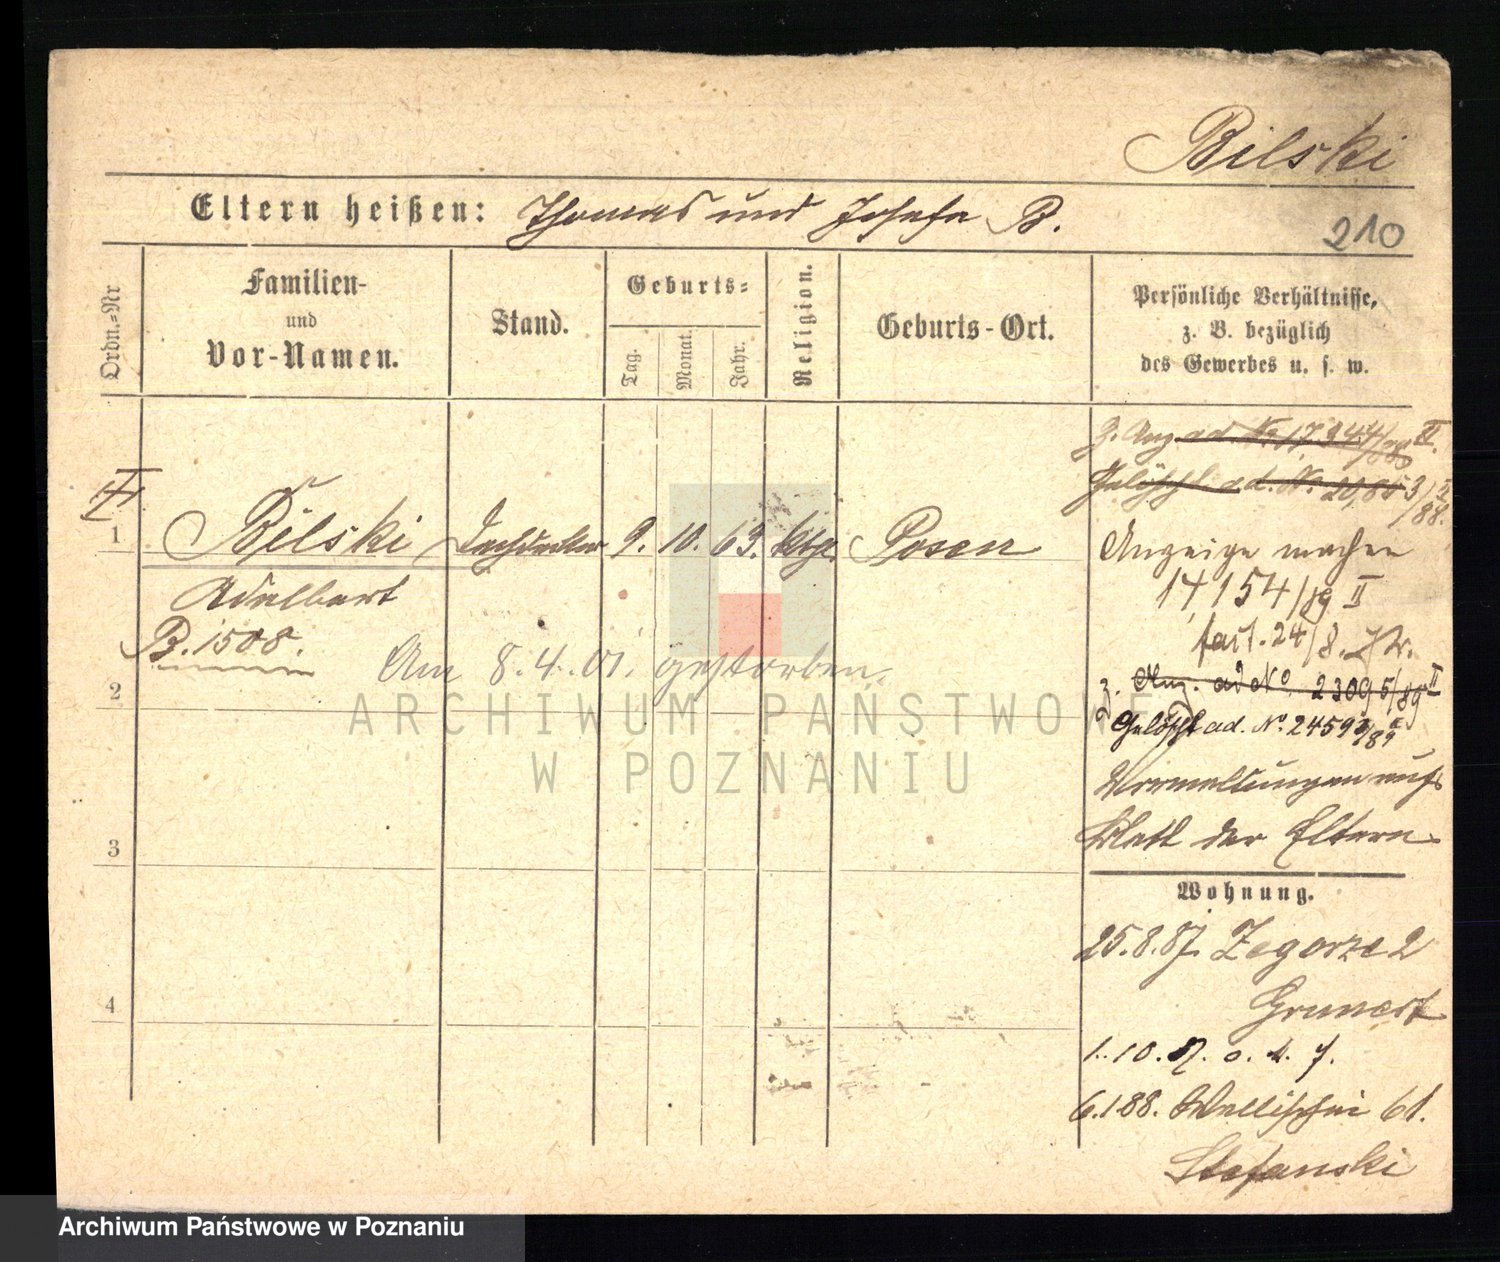 Bilski
Eltern heißen: Thomas und Josefa B.
210
Ordn.-Nr
Familien-
und
Vor-Namen.
Stand.
Geburts-
Tag.
Monat.
Jahr.
Religion.
Geburts-Ort.
Persönliche Verhältnisse,
z. B. bezüglich
des Gewerbes u. s. w.
z. Anz. ad. No. 17,944/88 II.
Gelöscht ad. No. 20,853/88 II
1 Bilski Dachdecker 9. 10. 63. kth. Posen
Adalbert
B. 1508.
Am 8.4.01. gestorben.
Anzeige machen
14,154/89 II
24/8.
z. Anz. ad No. 23095/89 II
Gelöscht ad. No. 24592/89 II
Vermeldungen aufs
Blatt der Eltern
2
3
4
Wohnung.
25.8.87. Zagorze 2
Grunert
1.10.87. o. d. 7.
6.1.88. Wallischei 61.
Stefanski
ARCHIWUM PAŃSTWOWE
W POZNANIU
Archiwum Państwowe w Poznaniu